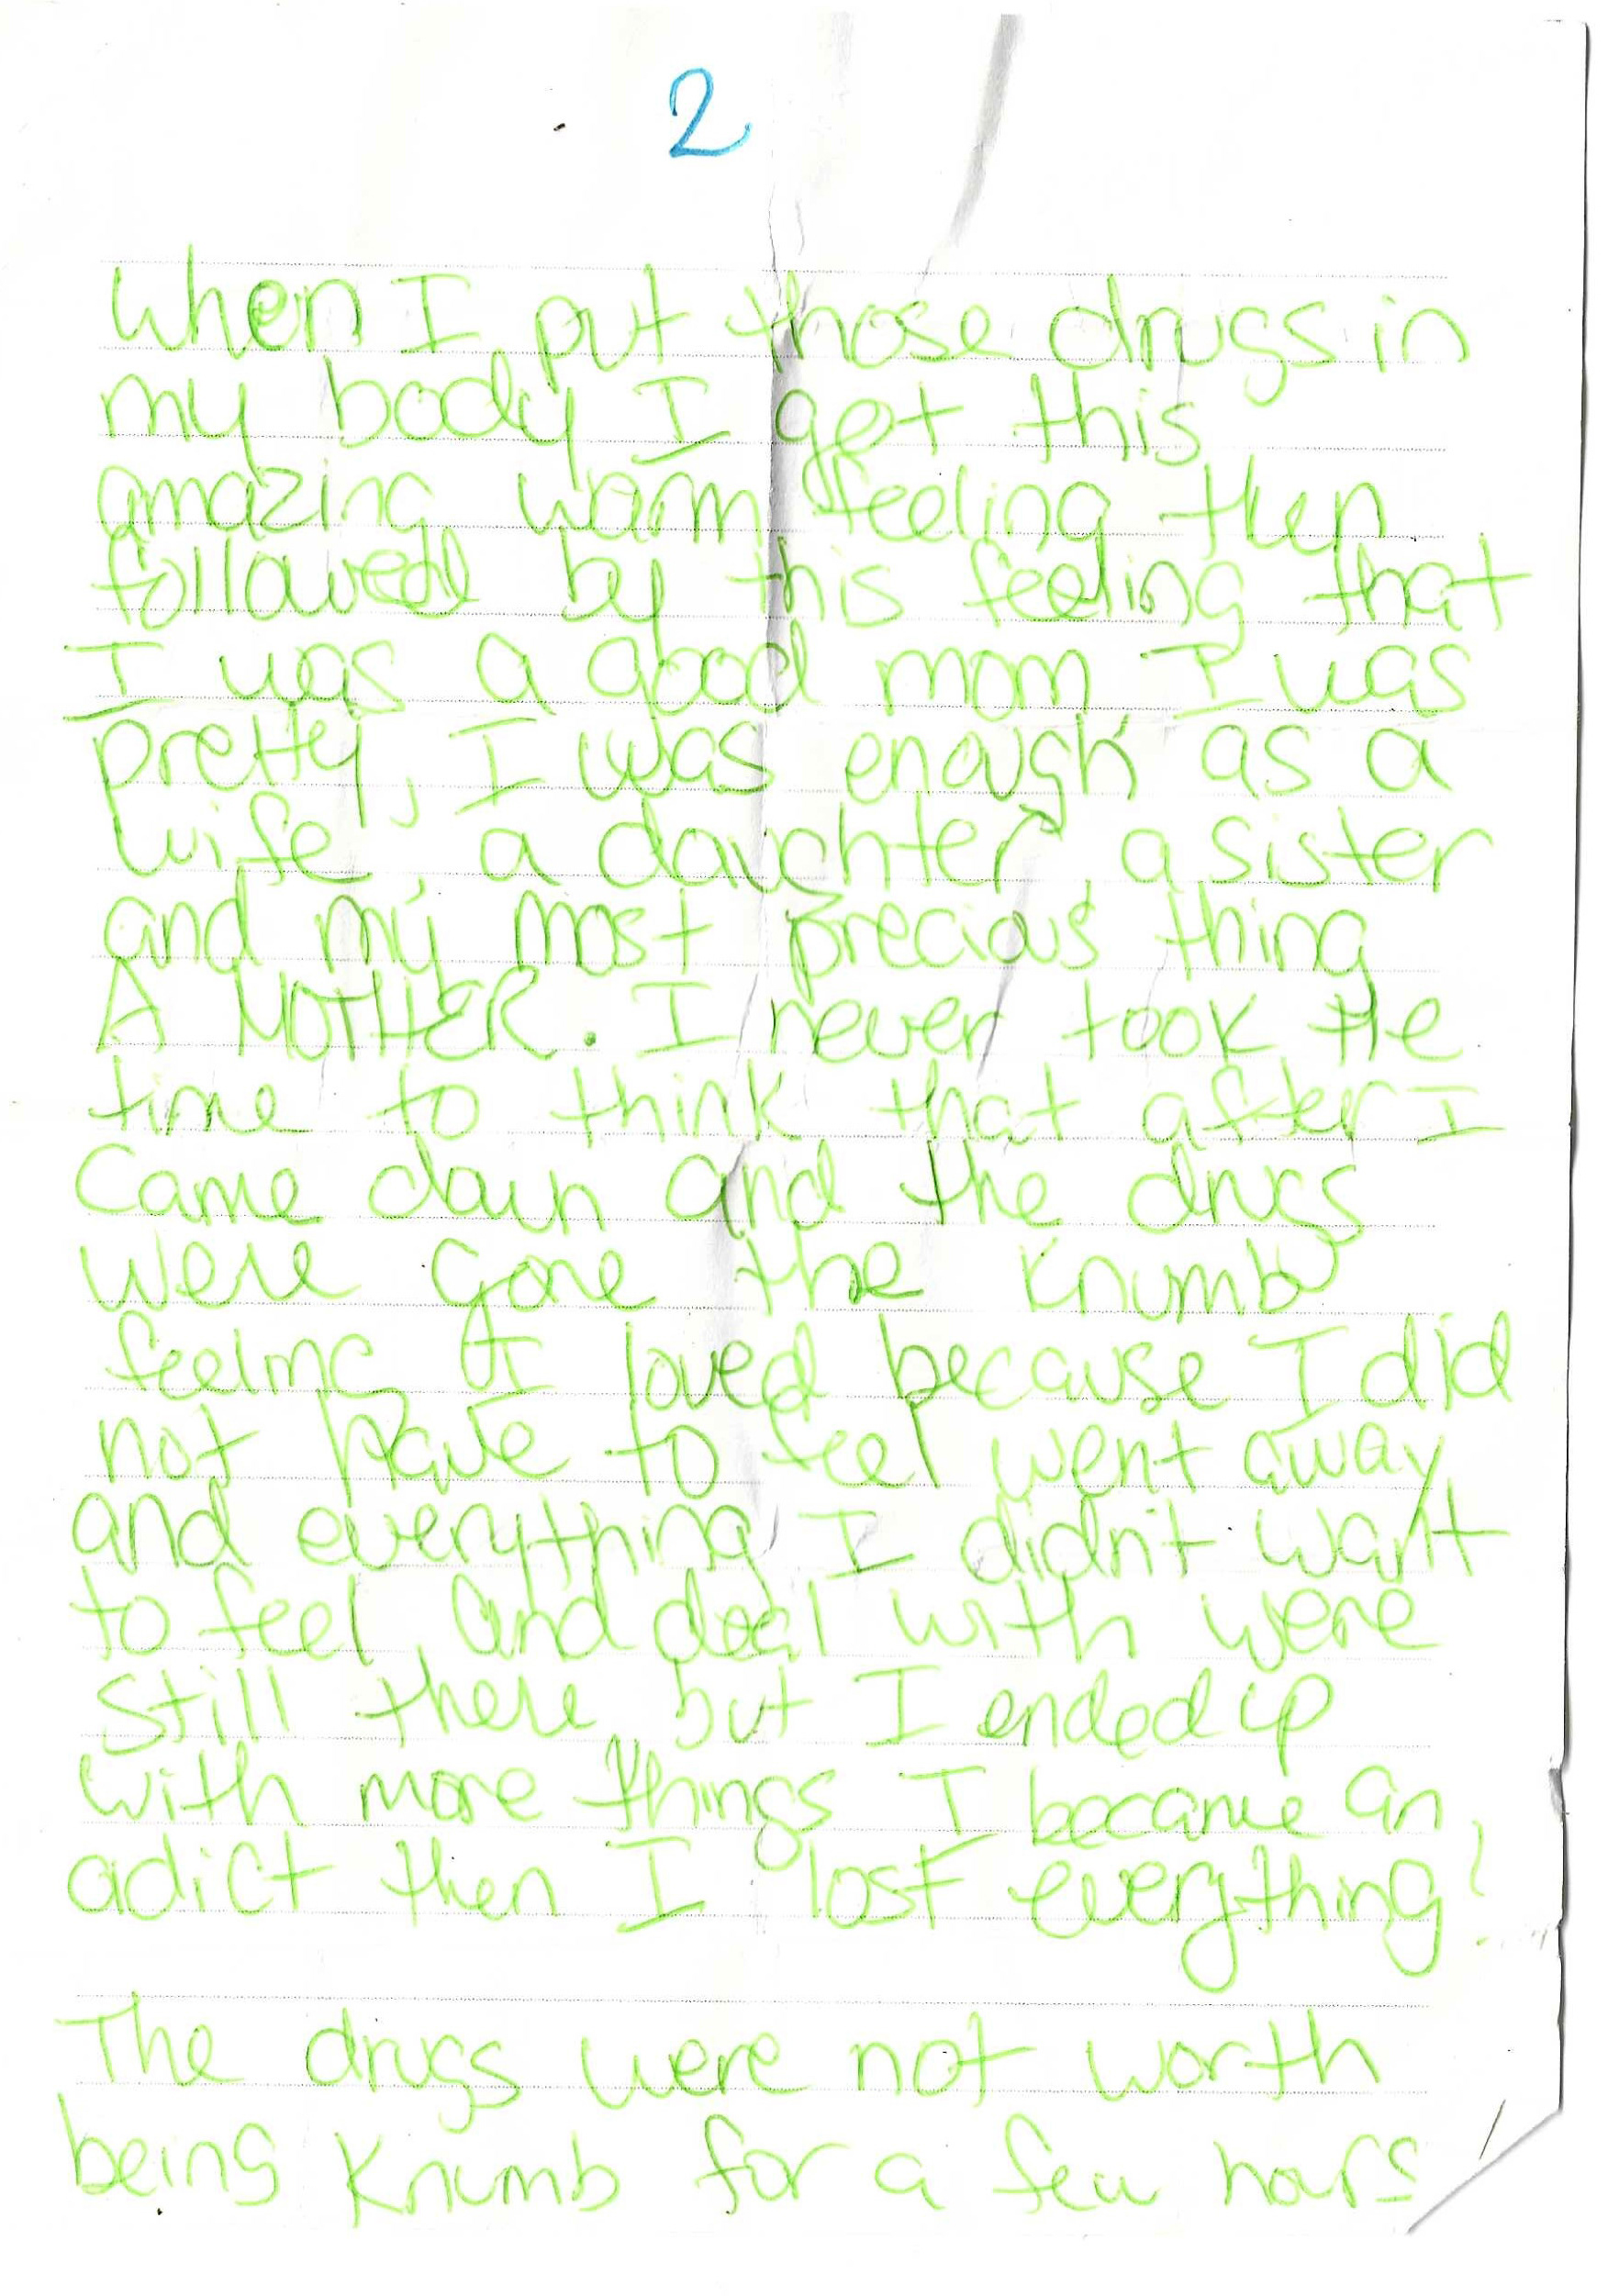 2
When I put those drugs in
my body I get this
amazing warm feeling then
followed by this feeling that
I was a good mom I was
pretty, I was enough as a
wife, a daughter, a sister
and my most precious thing
A MOTHER. I never took the
time to think that after I
came down and the drugs
were gone the knumb
feeling I loved because I did
not have to feel went away
and everything I didn't want
to feel and deal with were
still there but I ended up
with more things I became an
adict then I lost everything!
The drugs were not worth
being knumb for a few hours